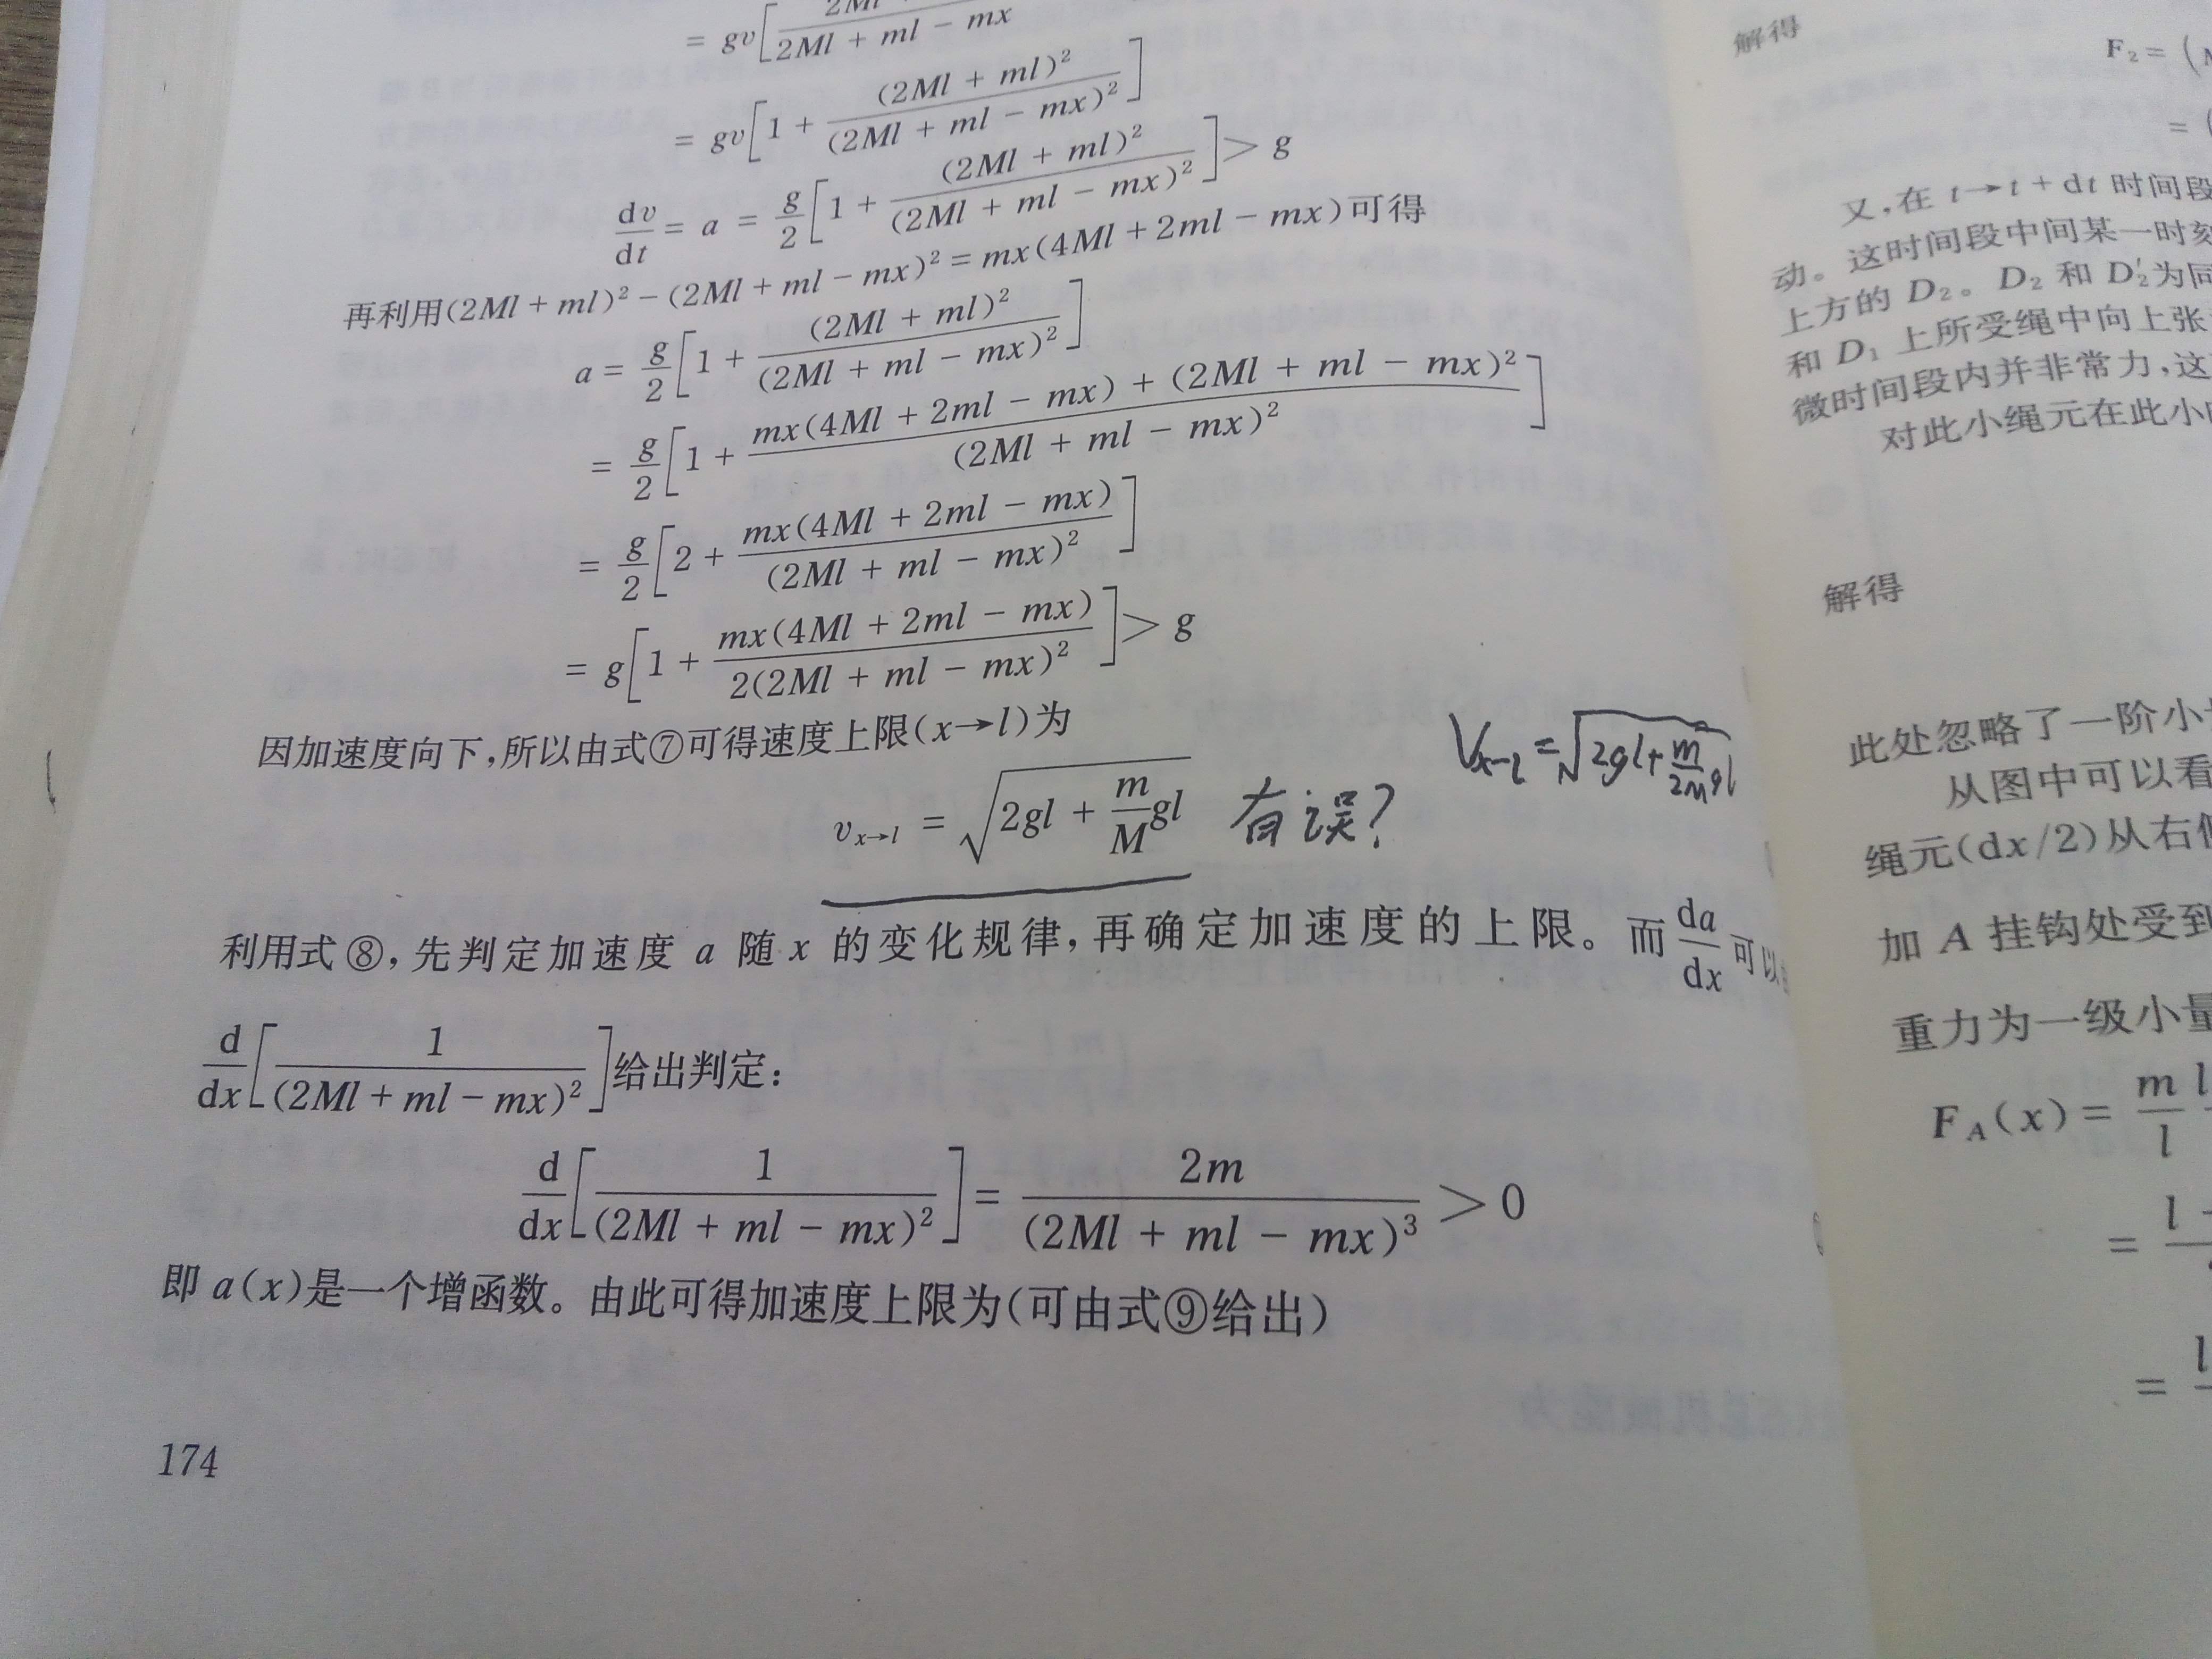 = gv[2Ml / (2Ml + ml − mx)
= gv[1 + (2Ml + ml)² / (2Ml + ml − mx)²]
dv/dt = a = g/2[1 + (2Ml + ml)² / (2Ml + ml − mx)²] > g
再利用(2Ml + ml)² − (2Ml + ml − mx)² = mx(4Ml + 2ml − mx)可得
a = g/2[1 + (2Ml + ml)² / (2Ml + ml − mx)²]
= g/2[1 + (mx(4Ml + 2ml − mx) + (2Ml + ml − mx)²) / (2Ml + ml − mx)²]
= g/2[2 + mx(4Ml + 2ml − mx) / (2Ml + ml − mx)²]
= g[1 + mx(4Ml + 2ml − mx) / 2(2Ml + ml − mx)²] > g
因加速度向下,所以由式⑦可得速度上限(x→l)为
v x→l = √(2gl + m/M gl) 有误? Vx→l = √(2gl + m/2M gl)
利用式⑧,先判定加速度 a 随 x 的变化规律,再确定加速度的上限。而 da/dx 可以
d/dx[1 / (2Ml + ml − mx)²]给出判定:
d/dx[1 / (2Ml + ml − mx)²] = 2m / (2Ml + ml − mx)³ > 0
即 a(x)是一个增函数。由此可得加速度上限为(可由式⑨给出)
174
解得
F₂ = (
= (
又,在 t→t + dt 时间段
动。这时间段中间某一时刻
上方的 D₂。D₂ 和 D₂′为同
和 D₁ 上所受绳中向上张
微时间段内并非常力,这
对此小绳元在此小
解得
此处忽略了一阶小
从图中可以看
绳元(dx/2)从右侧
加 A 挂钩处受到
重力为一级小量
F_A(x) = m/l
= l
= l